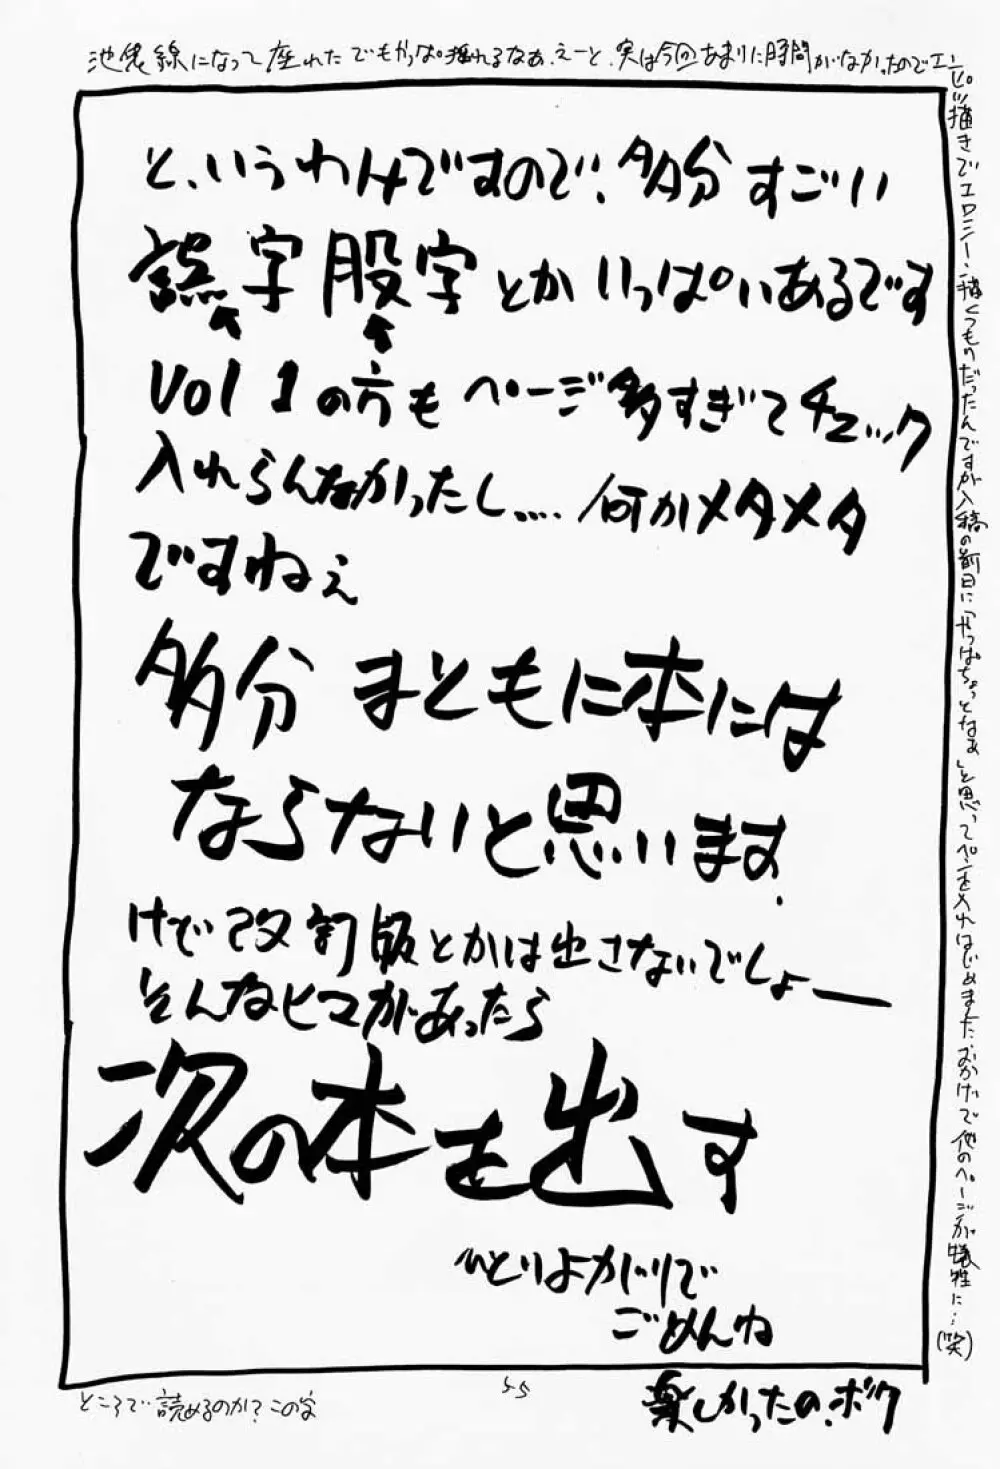 池袋線になって座れた でもやっぱ揺れるなぁ、えーと、実は今回あまりに時間がなかったのでエン
ピツ描きでエロシーン描くつもりだったんですが入稿の前日に「やっぱちょっとなぁ」と思ってペンを入れはじめましたおかげで他のページが犠牲に…(笑)
と、いうわけですので、多分すごい
誤字股字とかいっぱいあるです
Vol 1の方もページ多すぎてチェック
入れらんなかったし.... 何かメタメタ
ですねぇ
多分まともに本には
ならないと思います.
けど改訂版とかは出さないでしょー
そんなヒマがあったら
次の本を出す
ひとりよがりで
ごめんね
楽しかったの、ボク
55
ところで読めるのか?この字